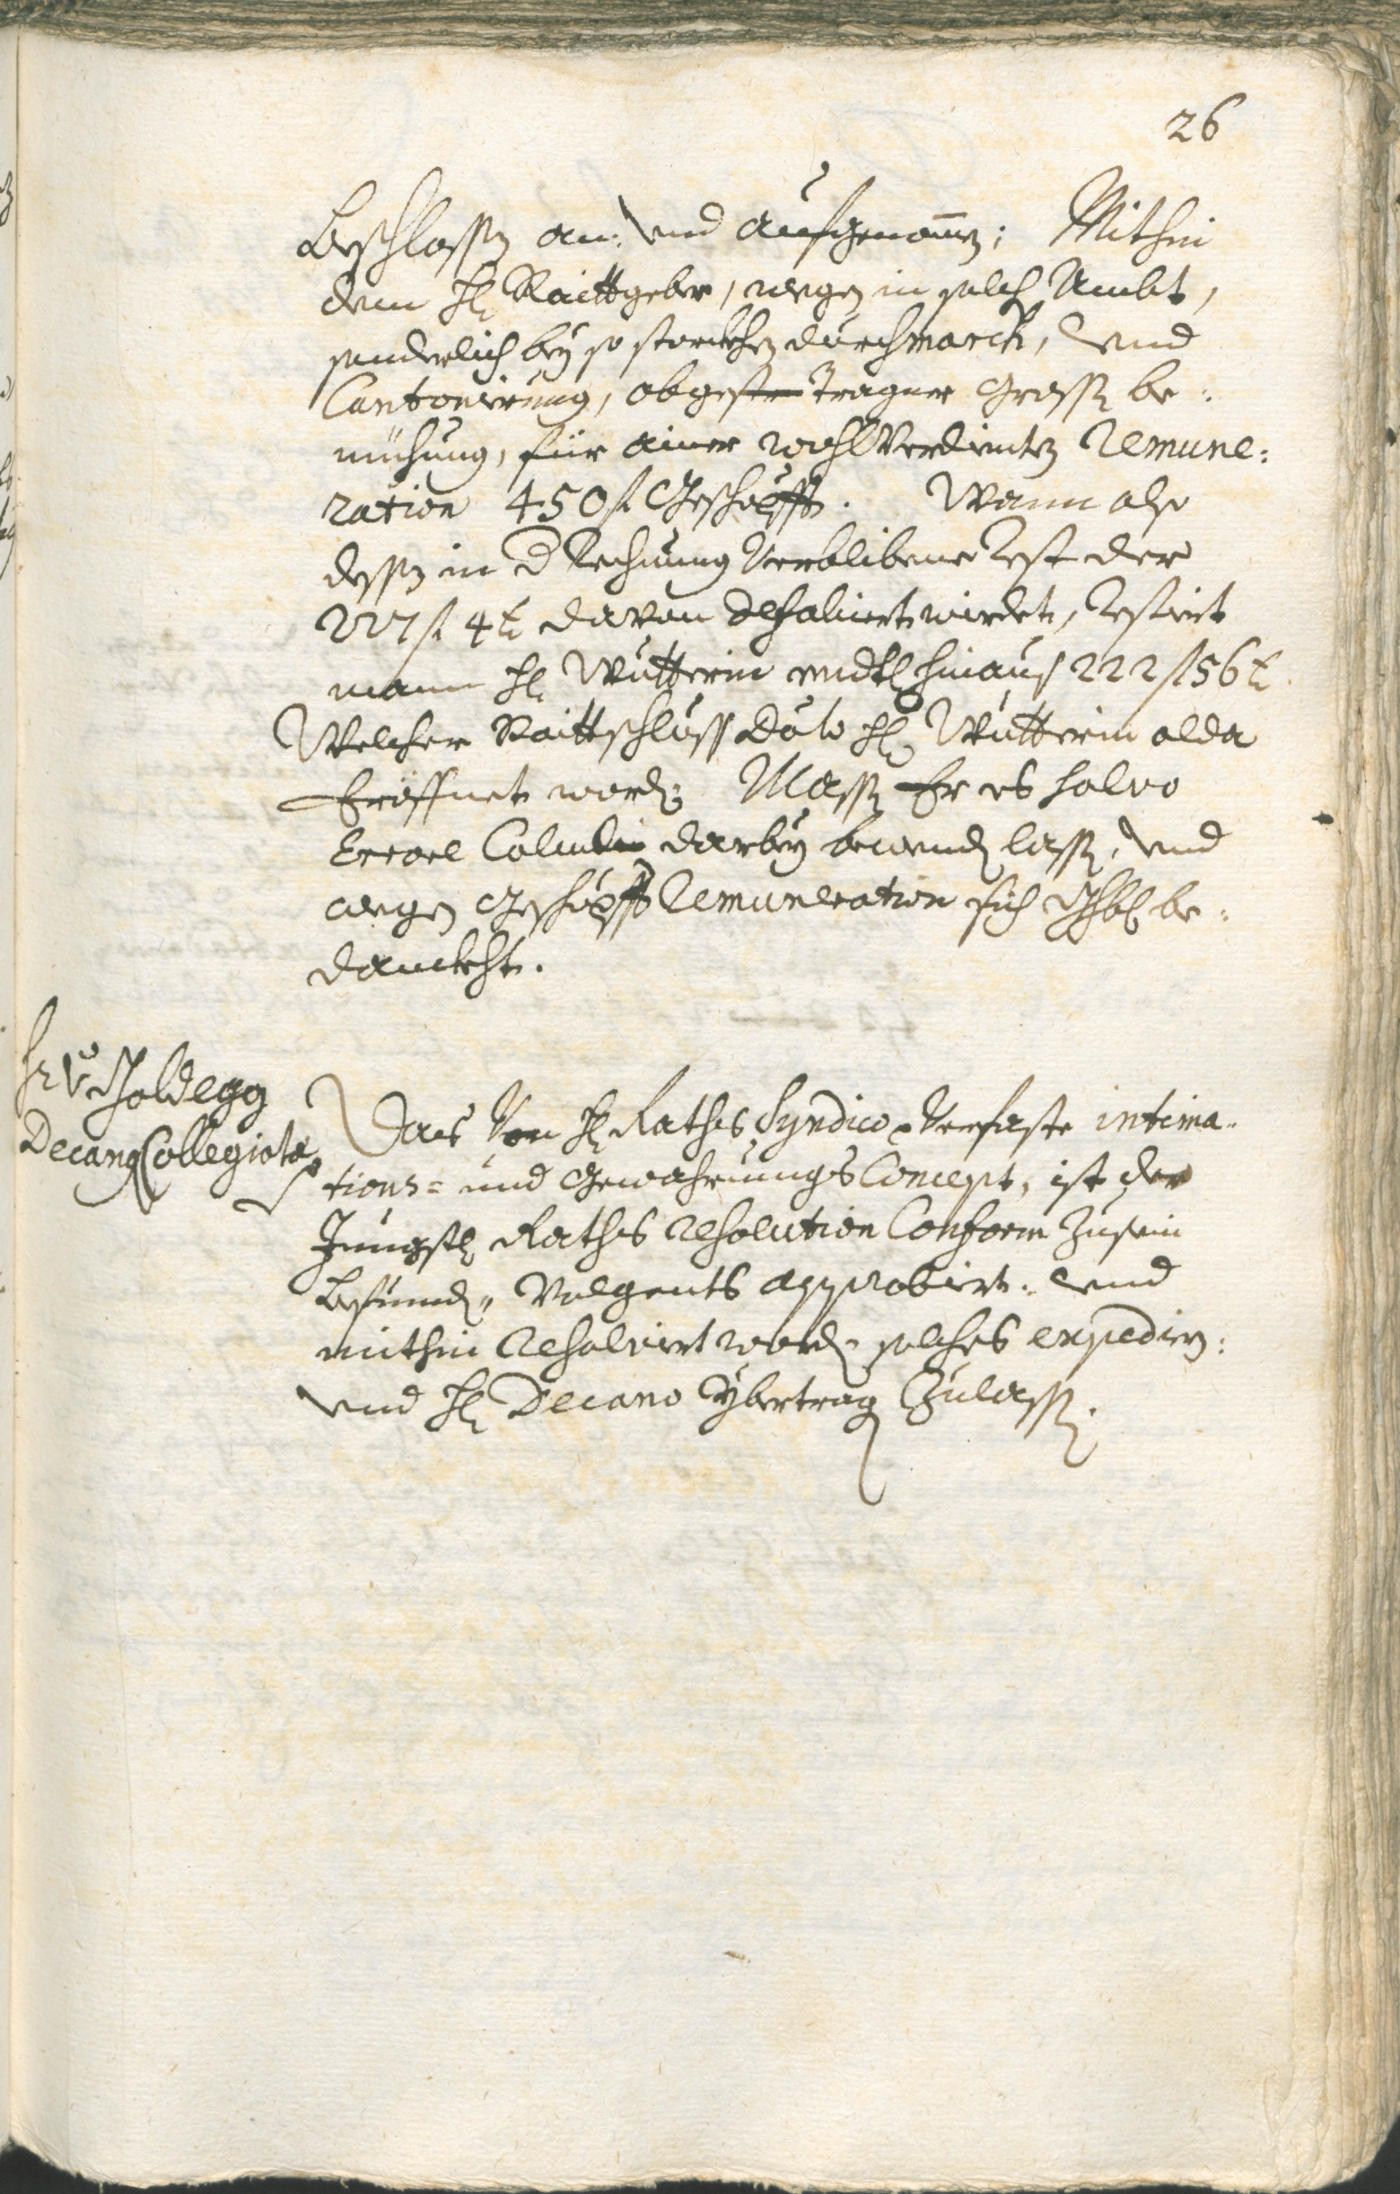 26
Beschlossen an: und aufgenommen; Mithin
dem H: Raittgeber, wegen in solch Ambt,
sonderlich bey so starckhen durchmarch, und
Cantonirung, obgestr Tragner grossen be:
müehung, für ainer wohlverdienten Remune:
ration 450 f Geschöpfft. Wann also
dessen in d Rechnung Verblibene Rest der
227 f 4 k davon defalciert wirdet, Restiert
mann H: Wutterin endtl hinaus 222 f 56 k.
Welcher Raittschluss dato H: Wutterin alda
Eröffnet worden: Massen Er es salvo
Errore Calculi darbey bewenden lassen, und
wegen geschöpfft Remuneration sich be:
danckht.
Hr v Goldegg
Decang Collegiatæ
Das Von H: Raths Syndico Verfaste intima-
tions= und Gewahrnungs Concept, ist der
Jüngsten Raths Resolution Conform zusein
Befunden, Volgents approbirt: und
mithin Resolvirt worden solches expediren:
und H: Decano Ybertragen Zulassen.